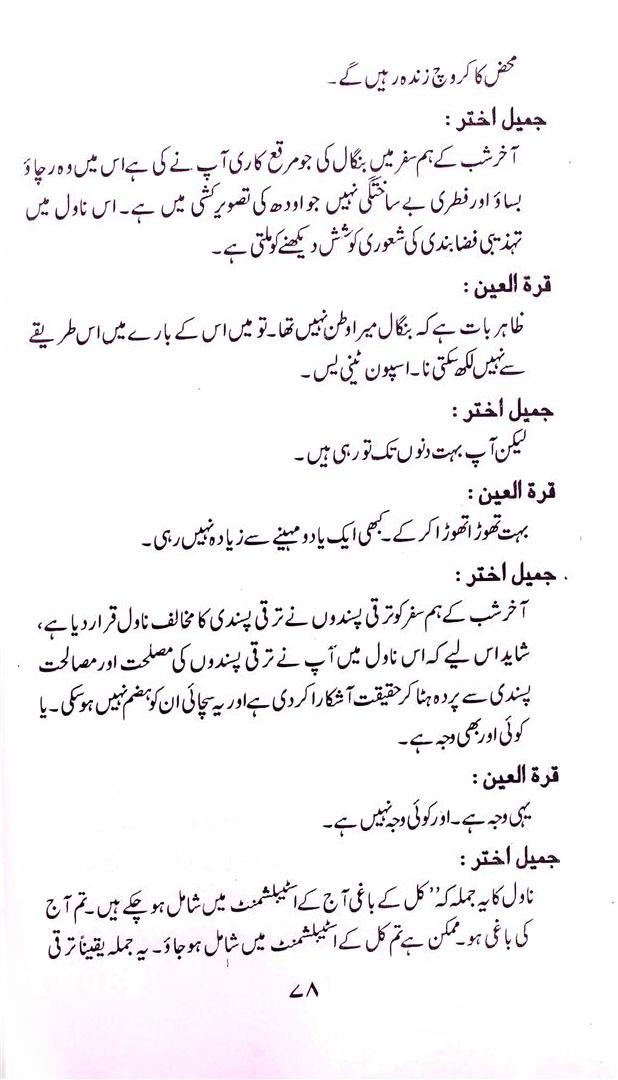 محض کاکروچ زندہ رہیں گے۔
جمیل اختر :
آخر شب کے ہم سفر میں بنگال کی جو مرقع کاری آپ نے کی ہے اس میں وہ رچاؤ
بساؤ اور فطری بے ساختگی نہیں جو اودھ کی تصویر کشی میں ہے۔ اس ناول میں
تہذیبی فضا بندی کی شعوری کوشش دیکھنے کو ملتی ہے۔
قرۃ العین :
ظاہر بات ہے کہ بنگال میرا وطن نہیں تھا۔ تو میں اس کے بارے میں اس طریقے
سے نہیں لکھ سکتی نا۔ اسپون ٹینی یس۔
جمیل اختر :
لیکن آپ بہت دنوں تک تو رہی ہیں۔
قرۃ العین :
بہت تھوڑا تھوڑا کر کے۔ کبھی ایک یا دو مہینے سے زیادہ نہیں رہی۔
جمیل اختر :
آخر شب کے ہم سفر کو ترقی پسندوں نے ترقی پسندی کا مخالف ناول قرار دیا ہے،
شاید اس لیے کہ اس ناول میں آپ نے ترقی پسندوں کی مصلحت اور مصالحت
پسندی سے پردہ ہٹا کر حقیقت آشکارا کر دی ہے اور یہ سچائی ان کو ہضم نہیں ہو سکی۔ یا
کوئی اور بھی وجہ ہے۔
قرۃ العین :
یہی وجہ ہے۔ اور کوئی وجہ نہیں ہے۔
جمیل اختر :
ناول کا یہ جملہ کہ ’’کل کے باغی آج کے اسٹیبلشمنٹ میں شامل ہو چکے ہیں۔ تم آج
کی باغی ہو۔ ممکن ہے تم کل کے اسٹیبلشمنٹ میں شامل ہو جاؤ۔ یہ جملہ یقیناً ترقی
۷۸